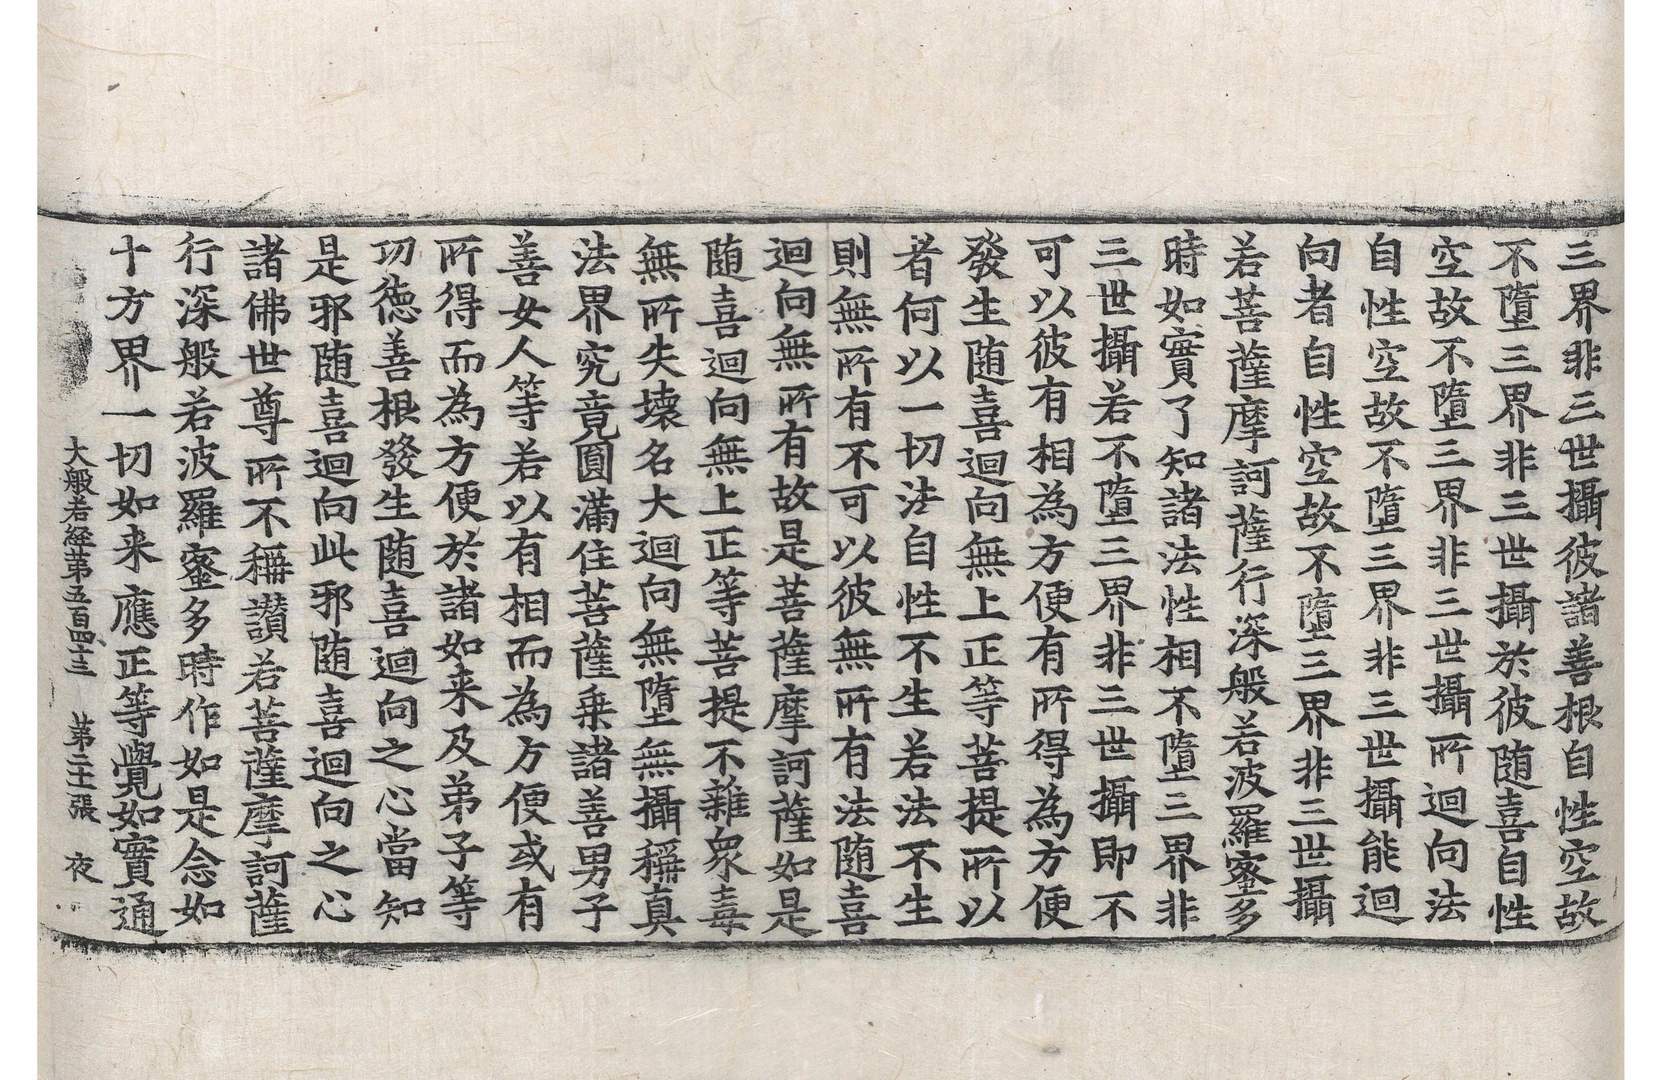 三界非三世攝彼諸善根自性空故
不墮三界非三世攝於彼随喜自性
空故不墮三界非三世攝所迴向法
自性空故不墮三界非三世攝能迴
向者自性空故不墮三界非三世攝
若菩薩摩訶薩行深般若波羅蜜多
時如實了知諸法性相不墮三界非
三世攝若不墮三界非三世攝即不
可以彼有相為方便有所得為方便
發生随喜迴向無上正等菩提所以
者何以一切法自性不生若法不生
則無所有不可以彼無所有法随喜
迴向無所有故是菩薩摩訶薩如是
随喜迴向無上正等菩提不雜衆毒
無所失壞名大迴向無墮無攝稱真
法界究竟圓滿住菩薩乗諸善男子
善女人等若以有相而為方便或有
所得而為方便於諸如来及弟子等
功徳善根發生随喜迴向之心當知
是邪随喜迴向此邪随喜迴向之心
諸佛世尊所不稱讃若菩薩摩訶薩
行深般若波羅蜜多時作如是念如
十方界一切如来應正等覺如實通
大般若経苐五百四十三 苐二十張 夜